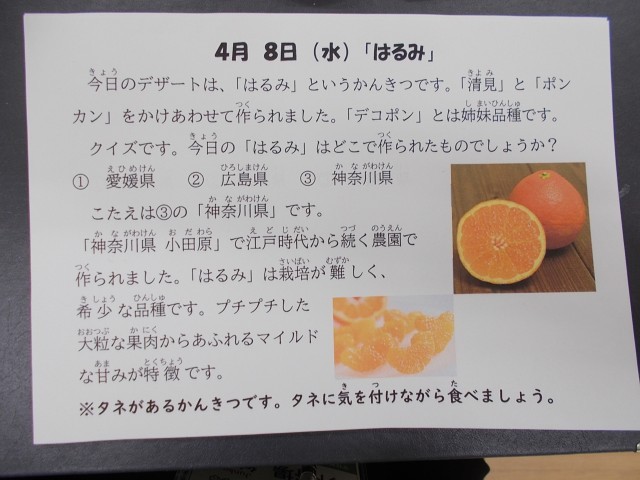 4月 8日（水）「はるみ」
今日のデザートは、「はるみ」というかんきつです。「清見」と「ポン
カン」をかけあわせて作られました。「デコポン」とは姉妹品種です。
クイズです。今日の「はるみ」はどこで作られたものでしょうか？
① 愛媛県 ② 広島県 ③ 神奈川県
こたえは③の「神奈川県」です。
「神奈川県 小田原」で江戸時代から続く農園で
作られました。「はるみ」は栽培が難しく、
希少な品種です。プチプチした
大粒な果肉からあふれるマイルド
な甘みが特徴です。
※タネがあるかんきつです。タネに気を付けながら食べましょう。